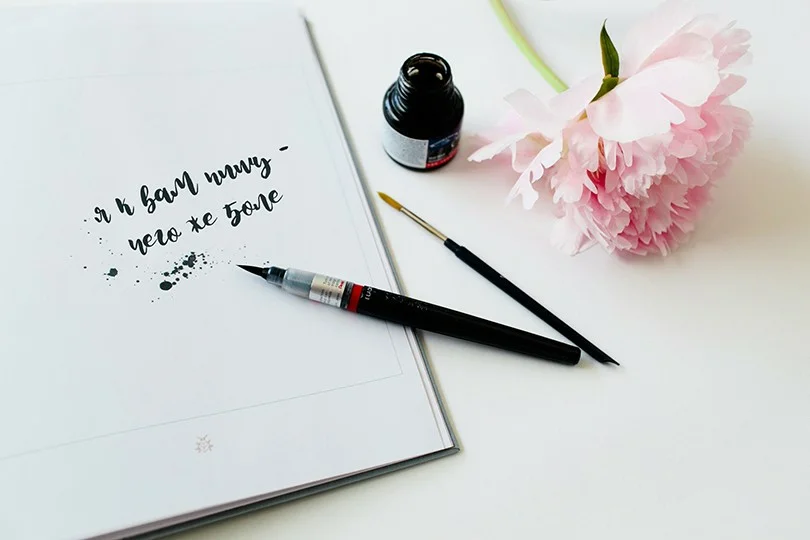 я к вам пишу -
чего же боле